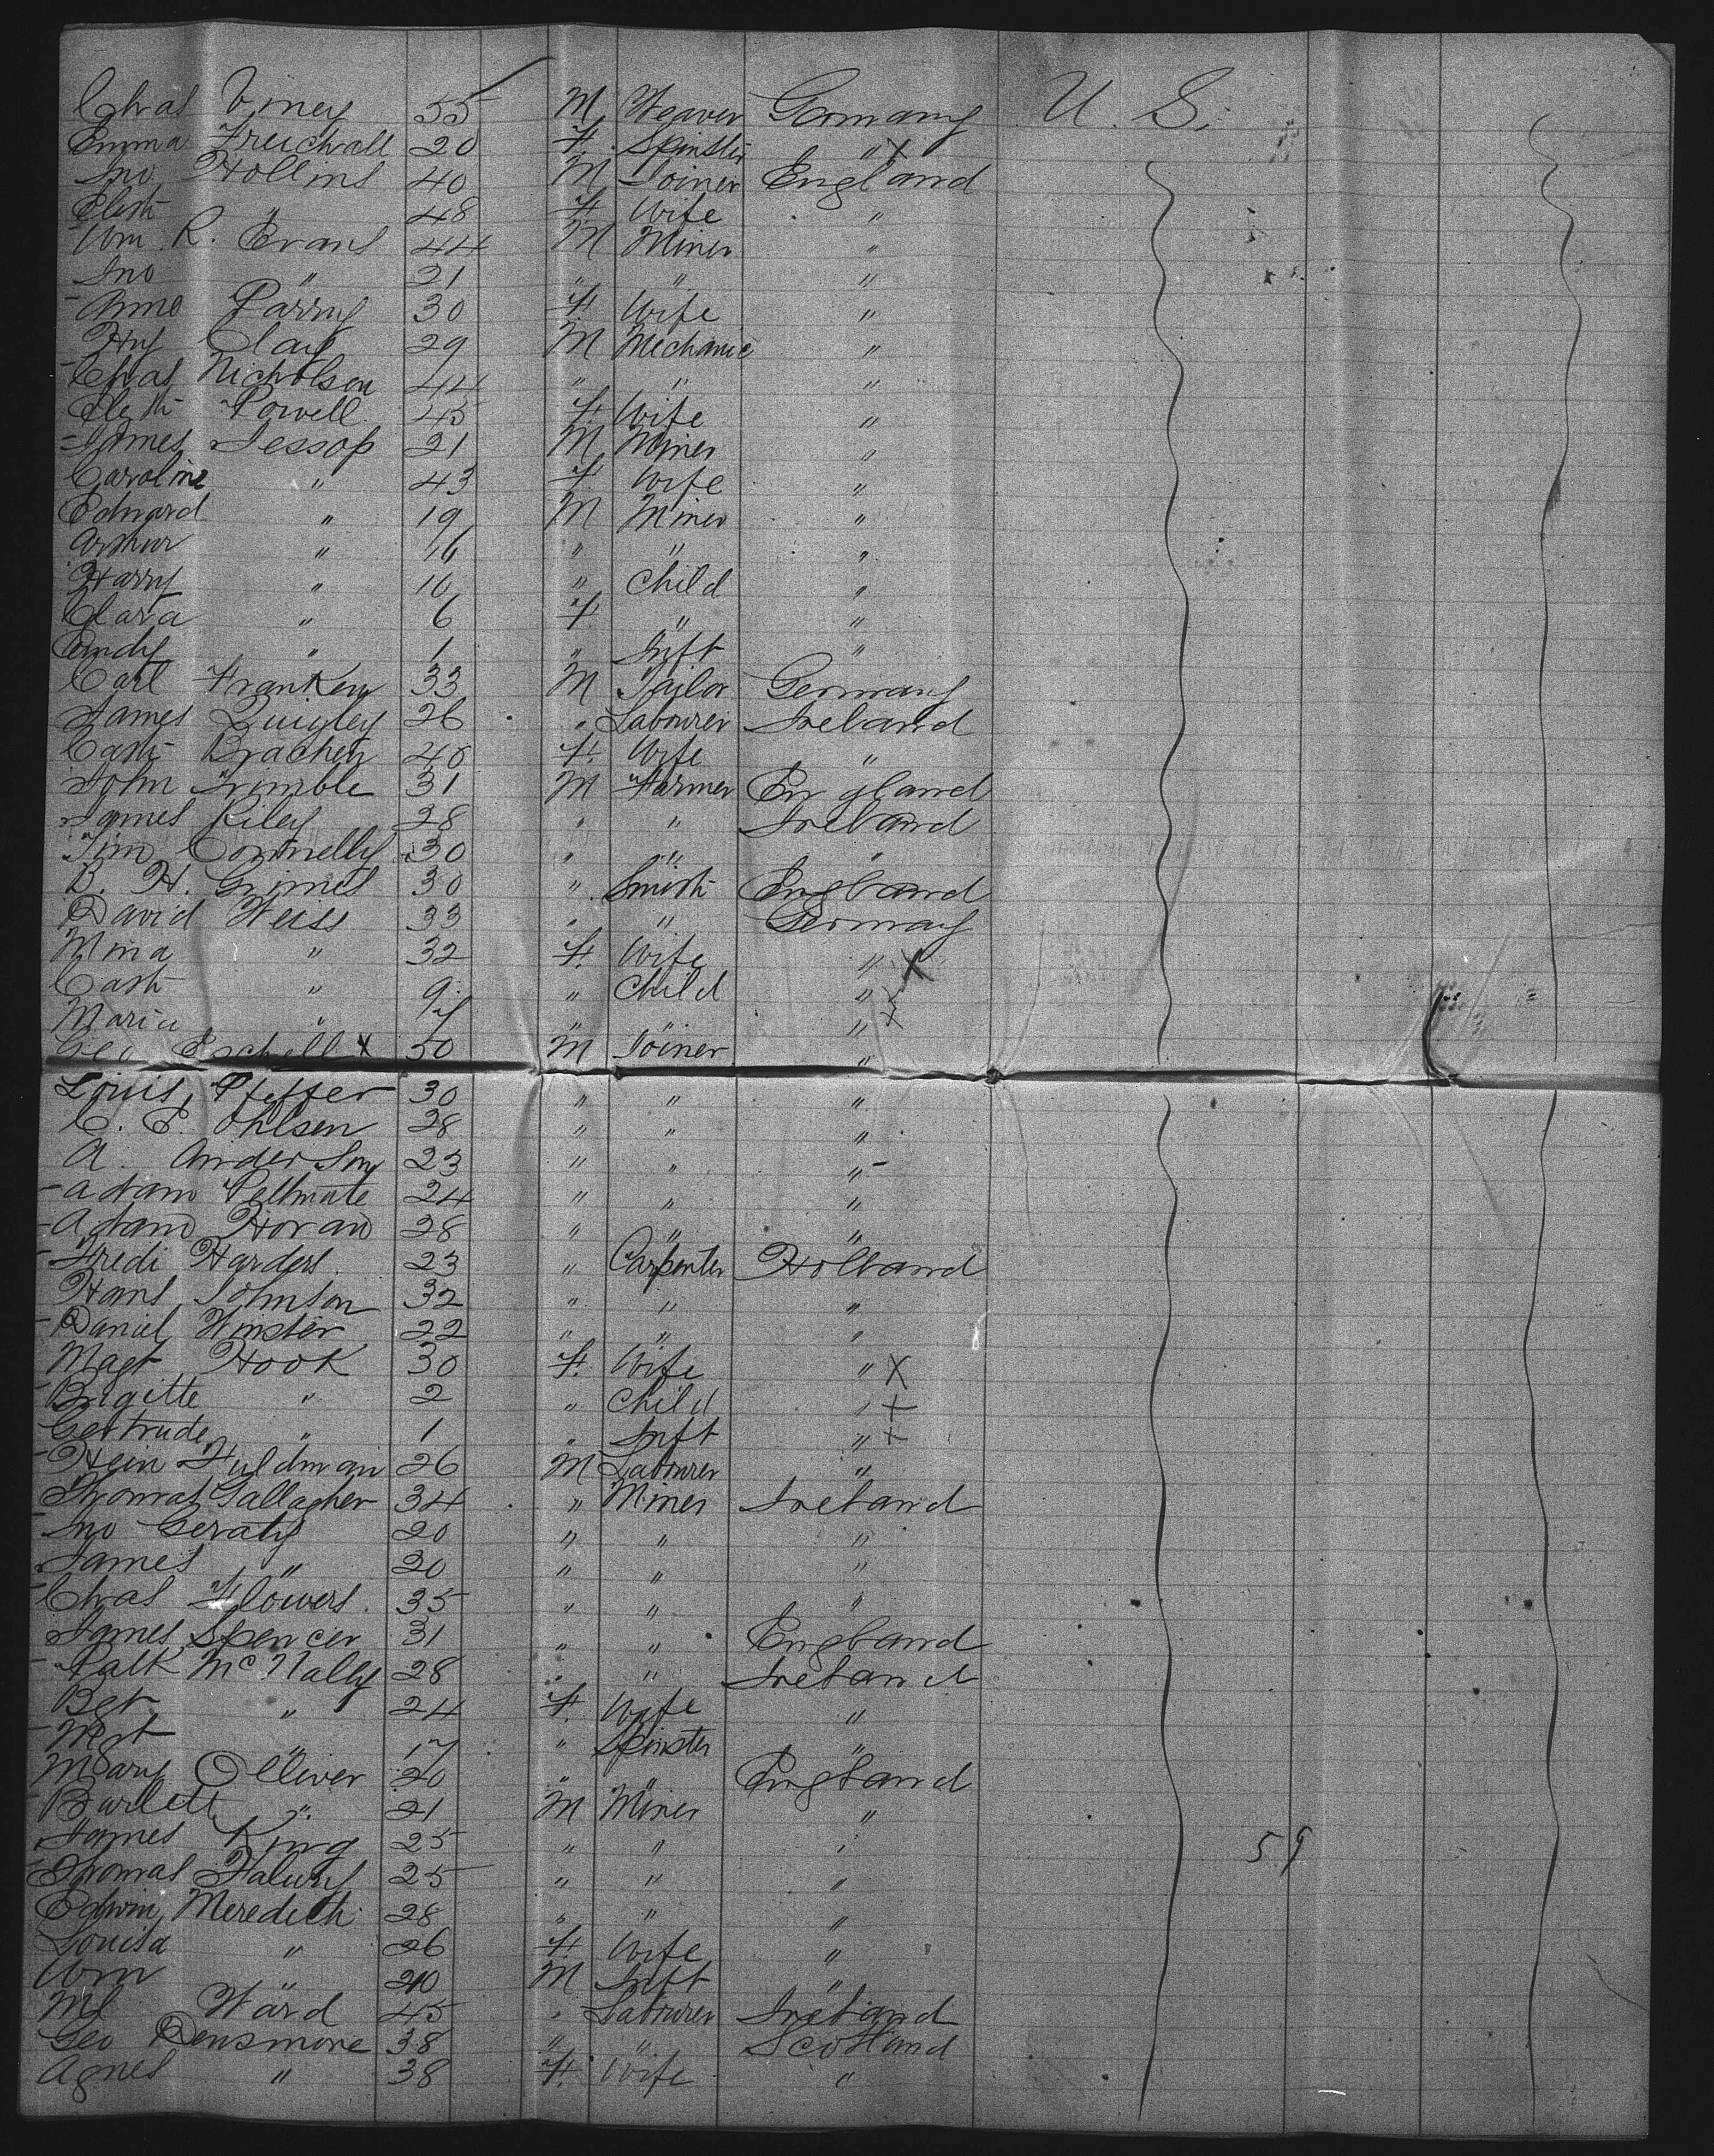 Chas Viney 55 M Weaver Germany U. S.
Emma 20 F. Spinster " X
Jno Hollins 40 M Joiner England
Elizth " 48 F Wife "
Wm. R. Evans 44 M Miner "
Jno " 21 " " "
Anne Parry 30 F Wife "
Hy Clay 29 M Mechanic "
Chas Nicholson 44 " " "
Elizth Powell 45 F. Wife "
James Jessop 21 M Miner "
Caroline " 43 F Wife "
Edward " 19 M Miner "
Arthur " 16 " " "
Harry " 10 " Child "
Clara " 6 F. " "
" 1 " Inft "
Carl Franken 33 M Tailor Germany
James Quigley 26 " Labourer Ireland
Cath Bracken 40 F. Wife "
John Trimble 31 M Farmer England
James Riley 28 " " Ireland
Tim Connelly 30 " " "
B. H. Grimes 30 " Smith England
David Weiss 33 " " Germany
Mina " 32 F. Wife " X
Cath " 9 " Child " X
Maria " 7 " " " X
Geo X 50 M Joiner "
Louis Pfeffer 30 " " "
C. P. Ohlsen 28 " " "
A. Anderson 23 " " "
Adam 24 " " "
Adam Horan 28 " " "
Fredi Harders 23 " Carpenter Holland
Hans Johnson 32 " " "
Daniel Winster 22 " " "
Magt Hook 30 F. Wife " X
Brigitte " 2 " Child " X
Gertrude " 1 " Inft " X
Hein Fuldman 26 M Labourer "
Thomas Gallagher 34 " Miner Ireland
Jno Geraty 20 " " "
James " 20 " " "
Chas Flowers 35 " " "
James Spencer 31 " " England
Patk McNally 28 " " Ireland
Bgt " 24 F. Wife "
Mgt " 17 " Spinster "
Mary Olliver 20 " " England
Bartlett " 21 M Miner "
James King 25 " " " 59
Thomas 25 " " "
Edwin Meredith 28 " " "
Louisa " 26 F. Wife "
Wm " M Inft "
Ml Ward 45 " Labourer Ireland
Geo Densmore 38 " " Scotland
Agnes " 38 F. Wife "